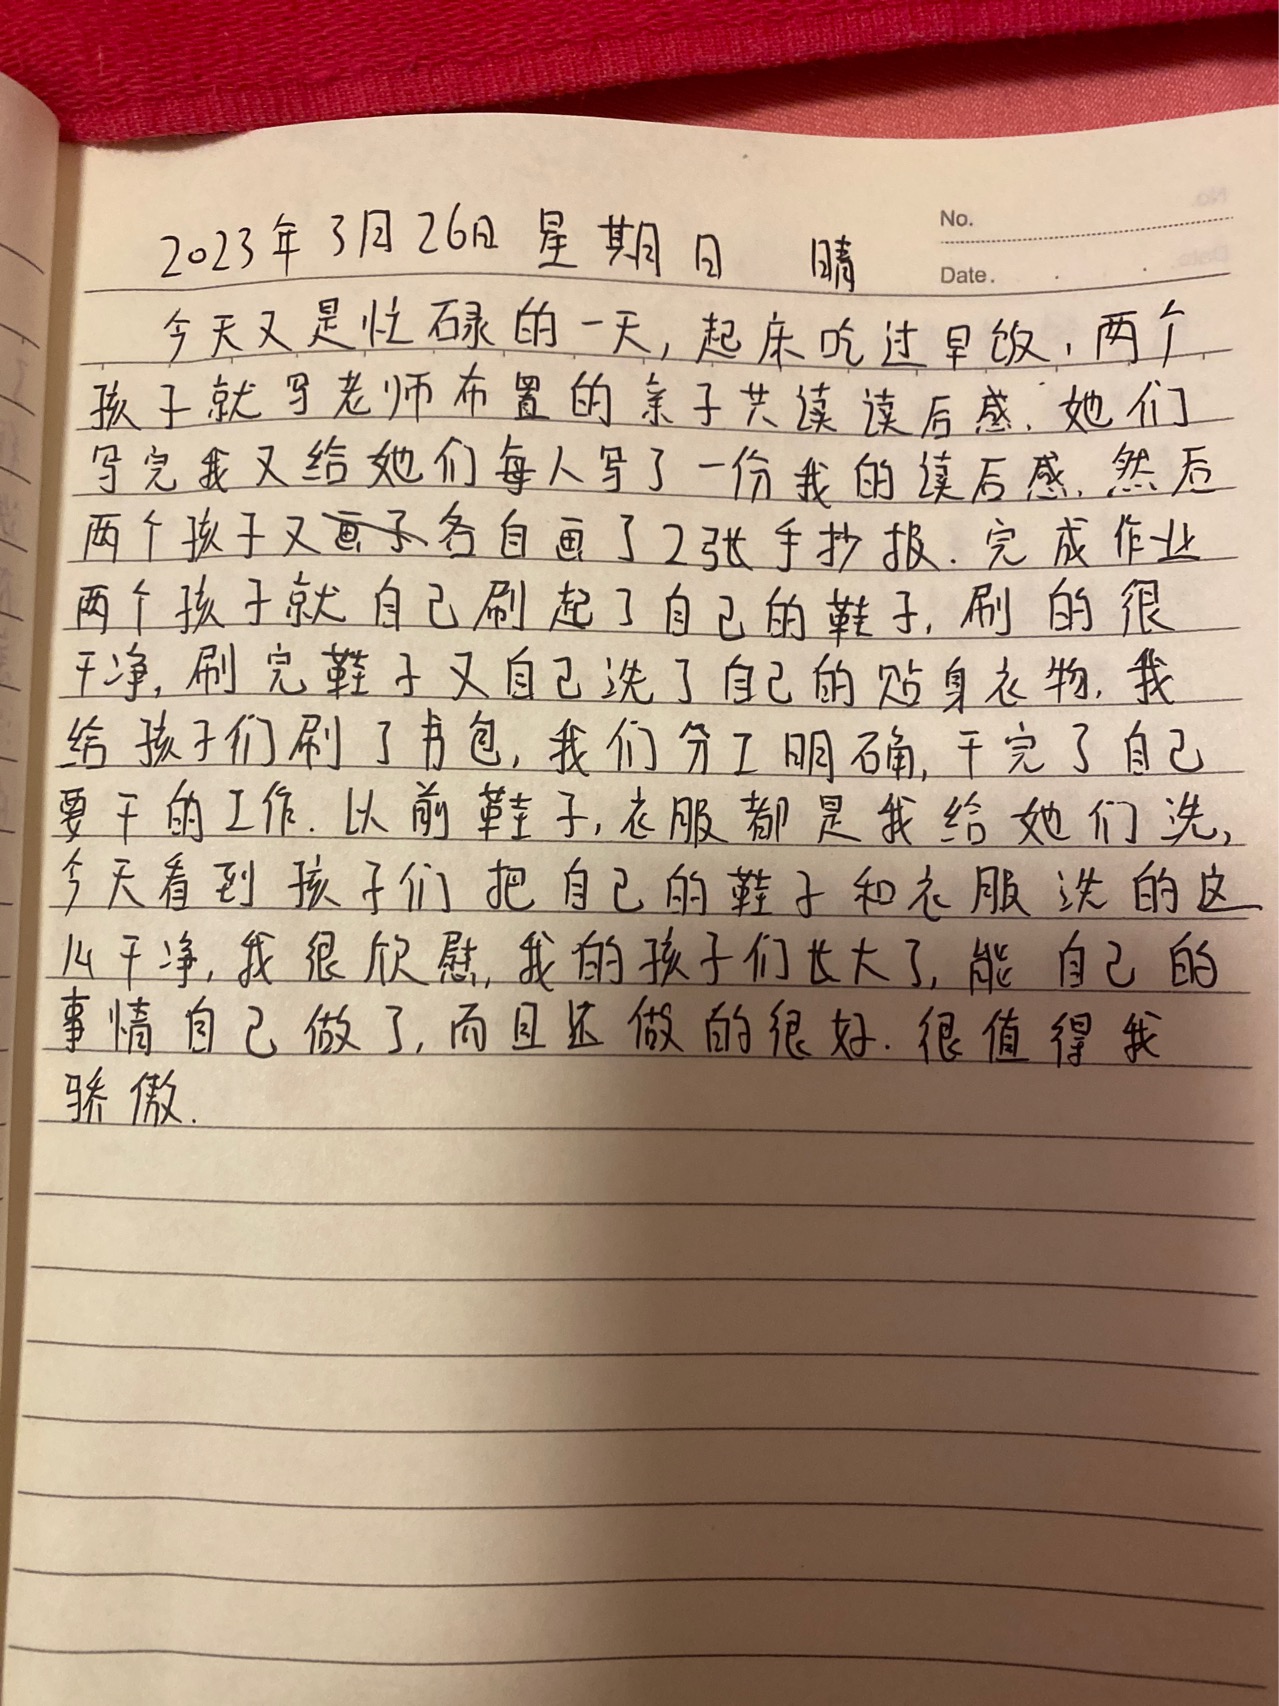 No.
2023年3月26日 星期日 晴
Date.
今天又是忙碌的一天,起床吃过早饭,两个
孩子就写老师布置的亲子共读读后感.她们
写完我又给她们每人写了一份我的读后感.然后
两个孩子又画了各自画了2张手抄报.完成作业
两个孩子就自己刷起了自己的鞋子,刷的很
干净,刷完鞋子又自己洗了自己的贴身衣物.我
给孩子们刷了书包,我们分工明确,干完了自己
要干的工作.以前鞋子,衣服都是我给她们洗,
今天看到孩子们把自己的鞋子和衣服洗的这
么干净,我很欣慰,我的孩子们长大了,能自己的
事情自己做了,而且还做的很好.很值得我
骄傲.